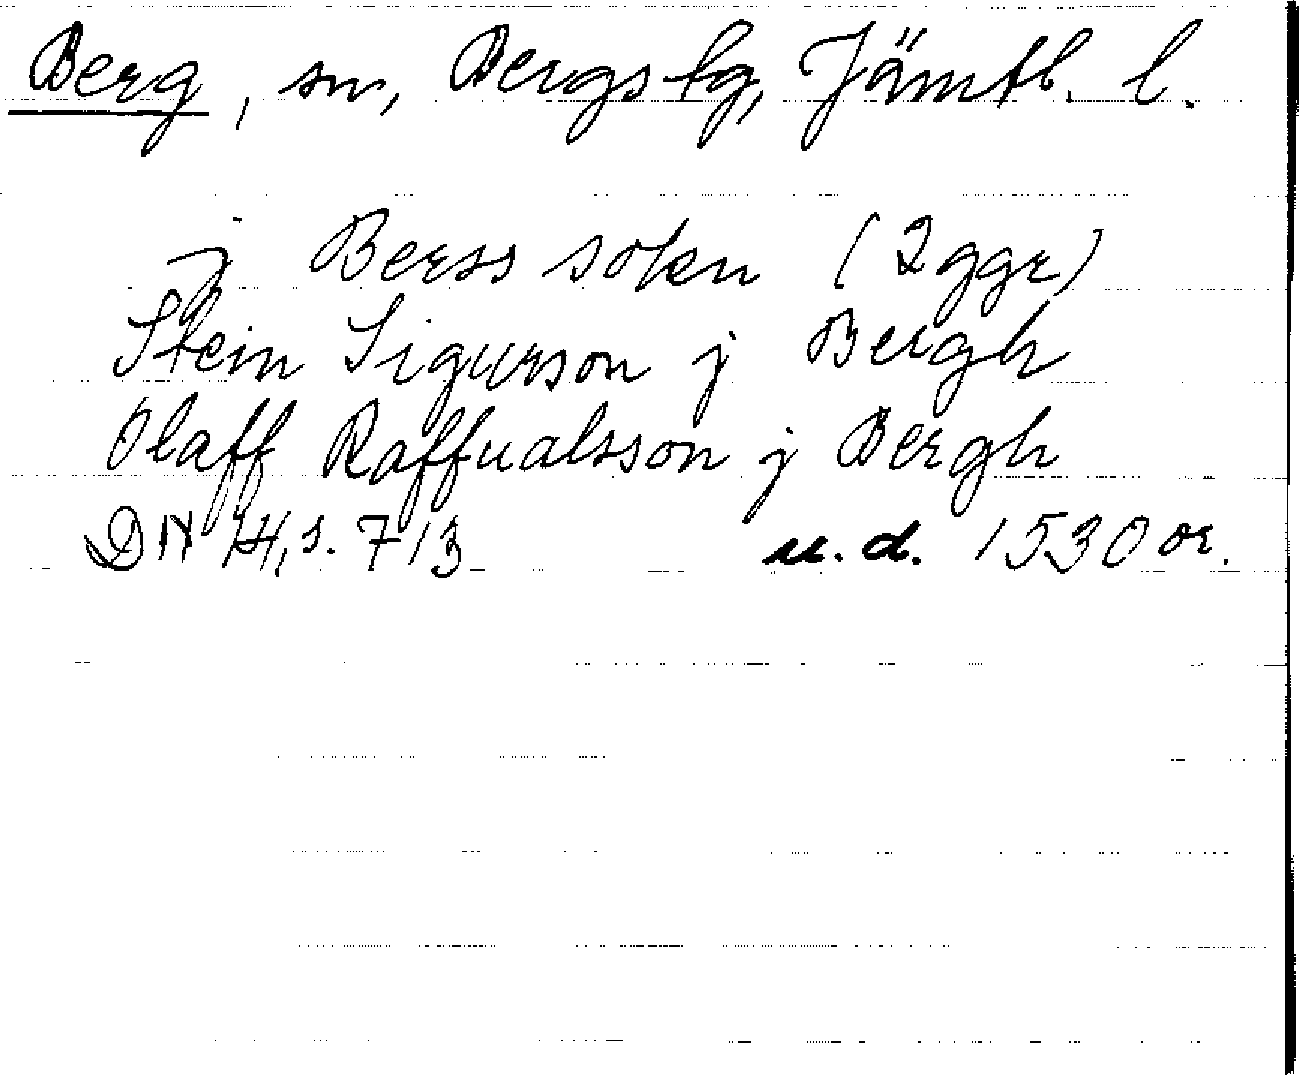 Berg, sn, Bergs tg, Jämtl. l.
j Berss sokn (2ggr)
Stein Sigurson j Bergh
Olaff Raffualsson j Bergh
DN 14, s. 713 u. d. 1530 or.